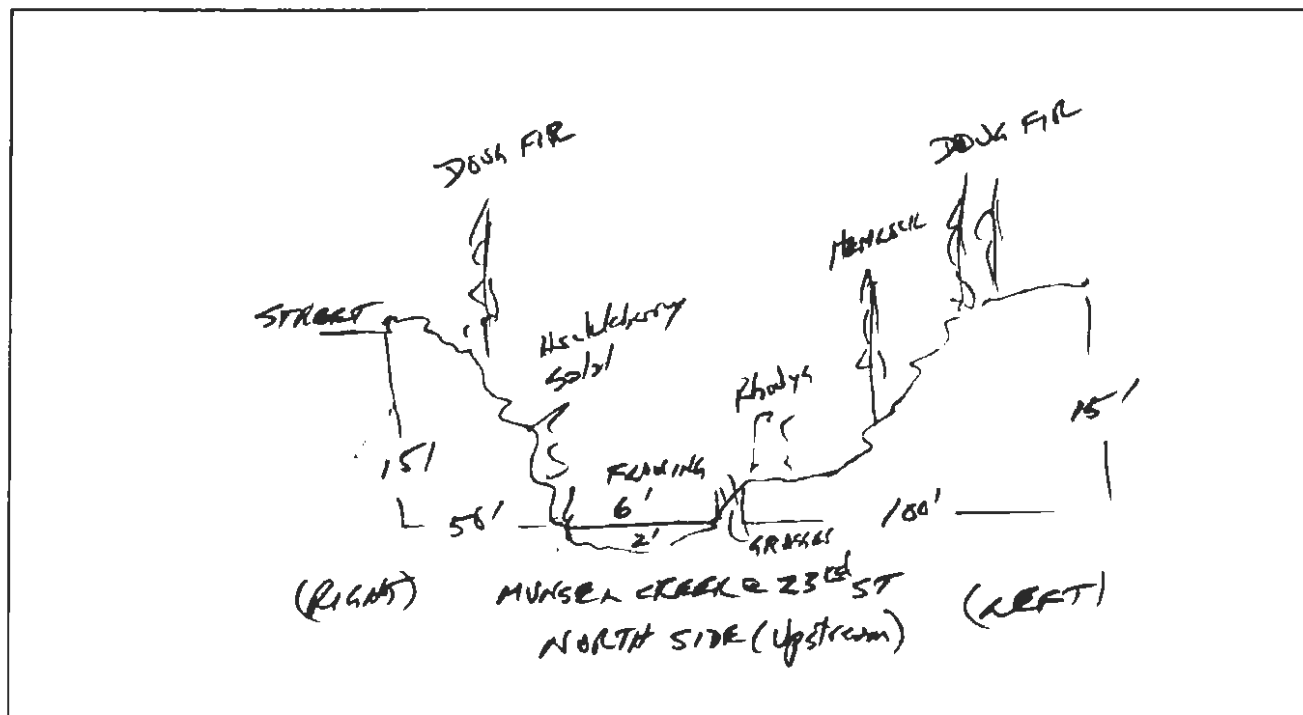 DOUG FIR
DOUG FIR
HEMLOCK
STREET
Huckleberry
Salal
Rhodys
15'
15'
FLOWING
6'
50'
2'
100'
GRASSES
(RIGHT)
MUNSEL CREEK @ 23rd ST
(LEFT)
NORTH SIDE (Upstream)